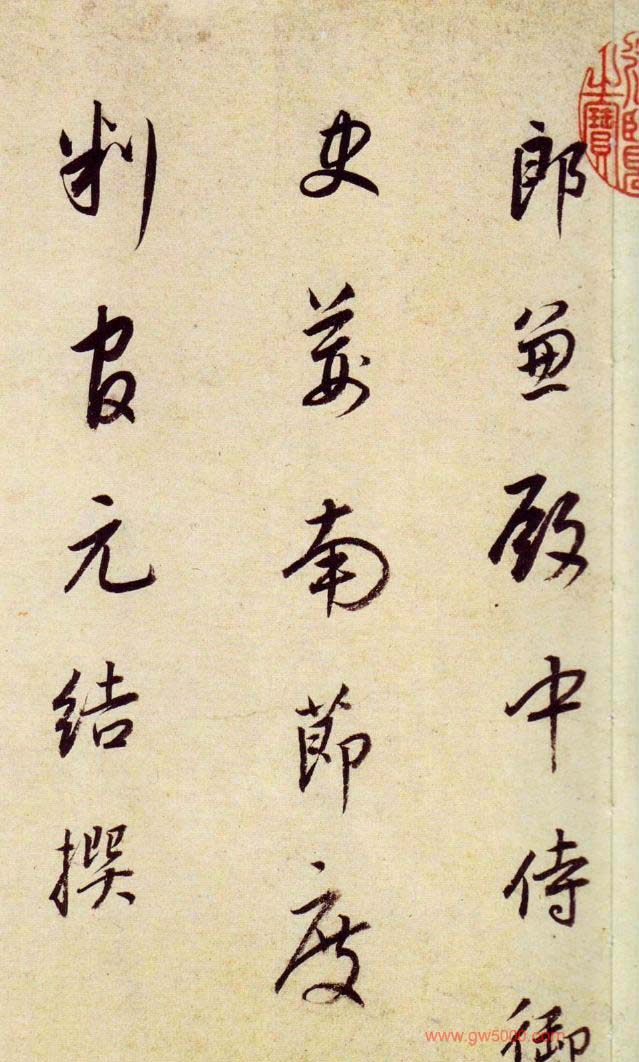 郎兼殿中侍御
史荊南節度
判官元結撰
之寶
www.gw5000.com